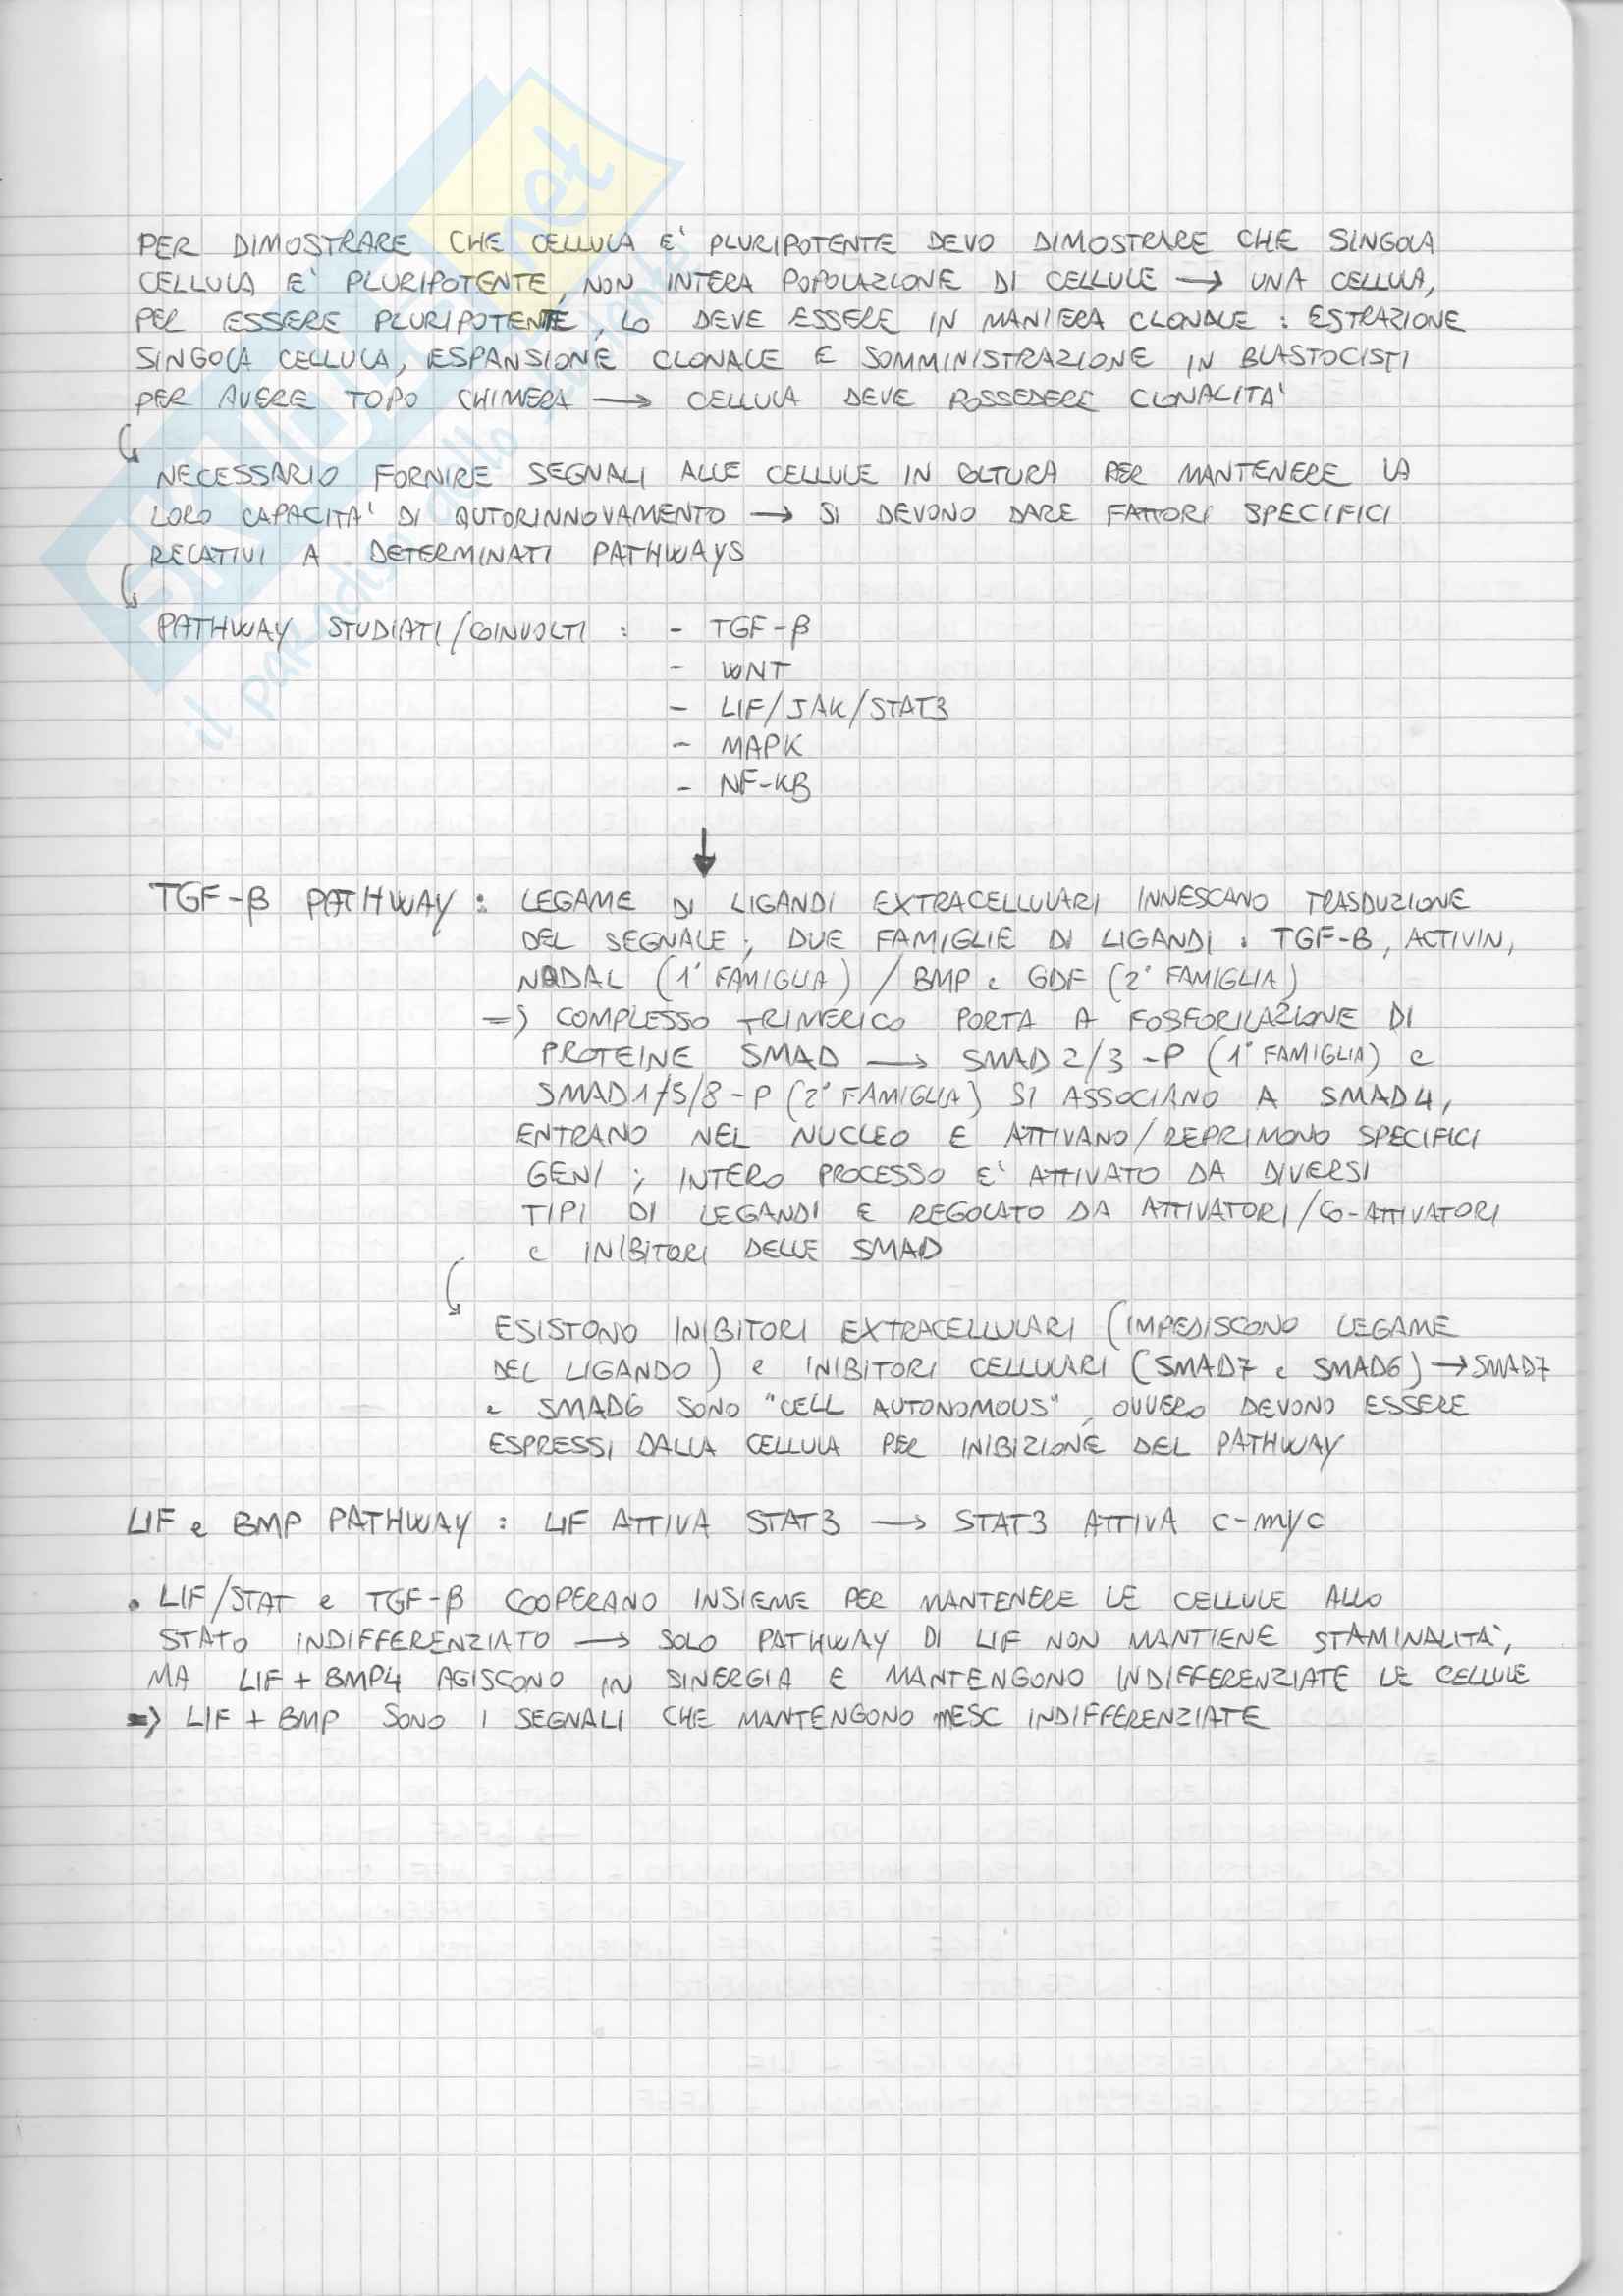 PER DIMOSTRARE CHE CELLULA E' PLURIPOTENTE DEVO DIMOSTRARE CHE SINGOLA
CELLULA E' PLURIPOTENTE, NON INTERA POPOLAZIONE DI CELLULE → UNA CELLULA,
PER ESSERE PLURIPOTENTE, LO DEVE ESSERE IN MANIERA CLONALE : ESTRAZIONE
SINGOLA CELLULA, ESPANSIONE CLONALE E SOMMINISTRAZIONE IN BLASTOCISTI
PER AVERE TOPO CHIMERA → CELLULA DEVE POSSEDERE CLONALITA'
NECESSARIO FORNIRE SEGNALI ALLE CELLULE IN COLTURA PER MANTENERE LA
LORO CAPACITA' DI AUTORINNOVAMENTO → SI DEVONO DARE FATTORI SPECIFICI
RELATIVI A DETERMINATI PATHWAYS
PATHWAY STUDIATI/COINVOLTI : - TGF-β
- WNT
- LIF/JAK/STAT3
- MAPK
- NF-KB
↓
TGF-β PATHWAY : LEGAME DI LIGANDI EXTRACELLULARI INNESCANO TRASDUZIONE
DEL SEGNALE ; DUE FAMIGLIE DI LIGANDI : TGF-B, ACTIVIN,
NODAL (1° FAMIGLIA) / BMP e GDF (2° FAMIGLIA)
=> COMPLESSO TRIMERICO PORTA A FOSFORILAZIONE DI
PROTEINE SMAD → SMAD 2/3 -P (1° FAMIGLIA) e
SMAD1/5/8-P (2° FAMIGLIA) SI ASSOCIANO A SMAD4,
ENTRANO NEL NUCLEO E ATTIVANO/REPRIMONO SPECIFICI
GENI ; INTERO PROCESSO E' ATTIVATO DA DIVERSI
TIPI DI LEGANDI E REGOLATO DA ATTIVATORI/CO-ATTIVATORI
e INIBITORI DELLE SMAD
ESISTONO INIBITORI EXTRACELLULARI (IMPEDISCONO LEGAME
DEL LIGANDO) e INIBITORI CELLULARI (SMAD7 e SMAD6) → SMAD7
e SMAD6 SONO "CELL AUTONOMOUS", OVVERO DEVONO ESSERE
ESPRESSI DALLA CELLULA PER INIBIZIONE DEL PATHWAY
LIF e BMP PATHWAY : LIF ATTIVA STAT3 → STAT3 ATTIVA c-myc
• LIF/STAT e TGF-β COOPERANO INSIEME PER MANTENERE LE CELLULE ALLO
STATO INDIFFERENZIATO → SOLO PATHWAY DI LIF NON MANTIENE STAMINALITA',
MA LIF + BMP4 AGISCONO IN SINERGIA E MANTENGONO INDIFFERENZIATE LE CELLULE
=> LIF + BMP SONO I SEGNALI CHE MANTENGONO mESC INDIFFERENZIATE